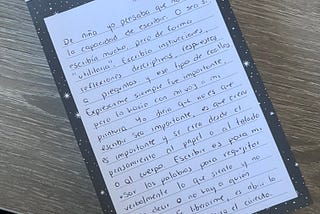 De niña yo pensaba que no
la capacidad de escribir. O sea sí
escribía mucho, pero de forma
"utilitaria". Escribía instrucciones,
reflexiones, descriptivas, respuestas
a preguntas y ese tipo de rollos
Expresarme siempre fue importante,
pero lo hacía con mi voz o mi
pintura. Yo diría que no es que
escribir sea importante, es que crear
es importante y se crea desde el
pensamiento al papel o al teclado
o al cuerpo. Escribir es para mí
usar las palabras para
verbalmente lo que siento y no
decir o no hay a quién
es liberarme, es abrir la
el cuerpo